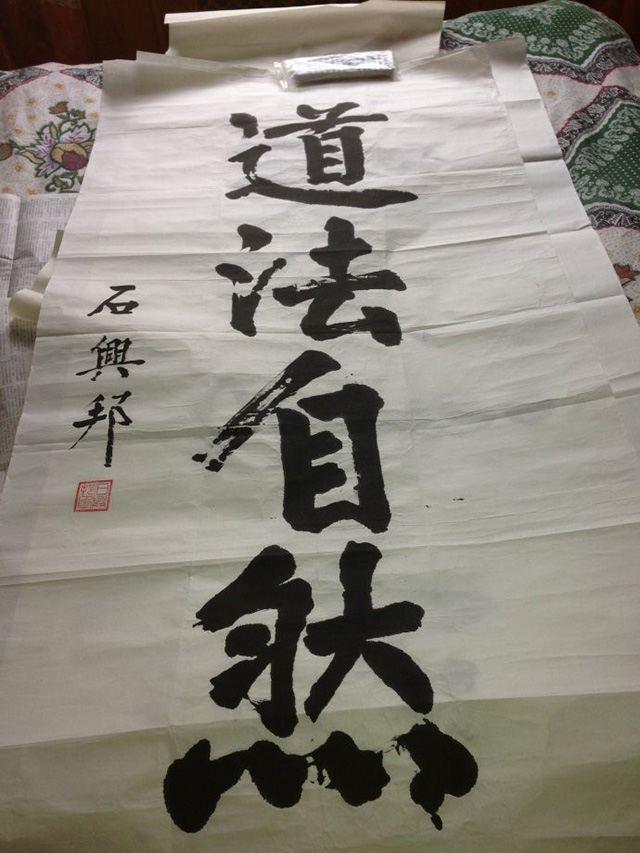 道法自然
石興邦